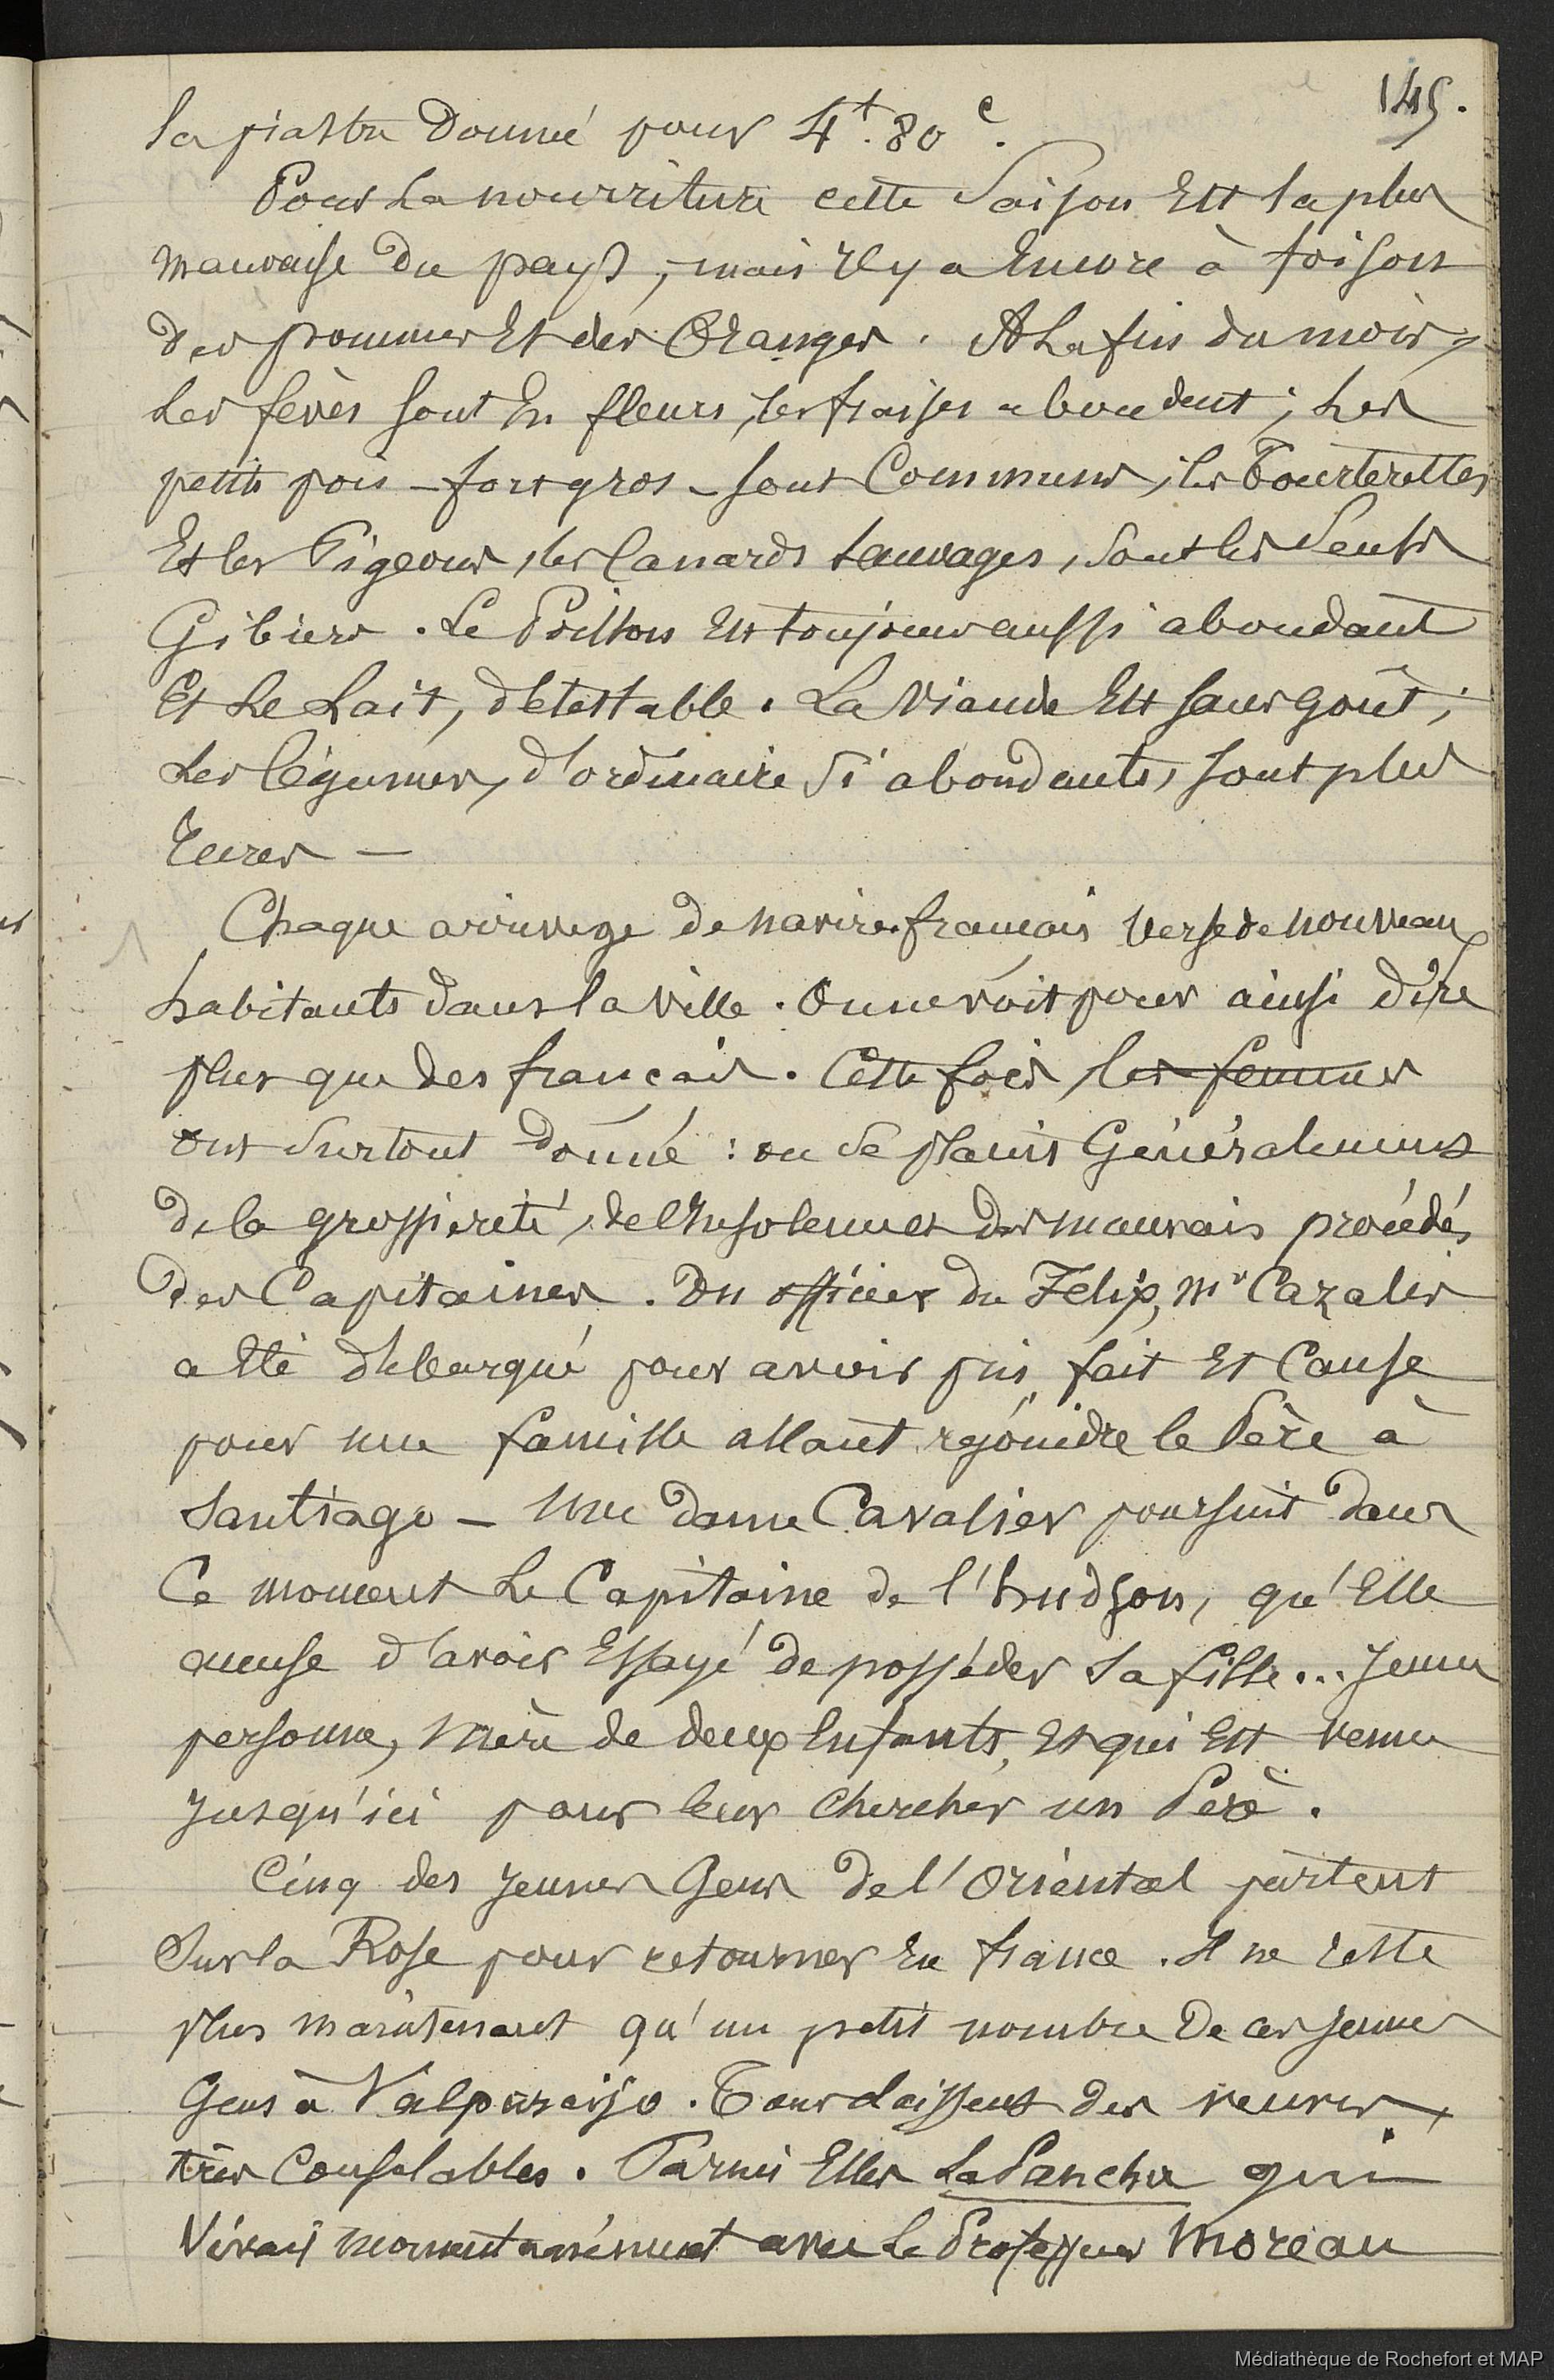 145.
la piastre donné pour 4f. 80c.
Pour la nourriture cette saison est la plus
mauvaise du pays, mais il y a encore à foison
des pommes et des oranges. A la fin du mois,
les fèves sont en fleurs, les fraises abondent ; les
petits pois - fort gros - sont communs, les Tourterelles
et les Pigeons, les Canards sauvages, sont les seuls
Gibiers. Le Poisson est toujours aussi abondant
et le Lait, détestable. La Viande est sans goût ;
les légumes, d'ordinaire si abondants, sont plus
rares —
Chaque arrivage de navires français verse de nouveaux
habitants dans la ville. On ne voit pour ainsi dire
plus que des français. Cette fois, les femmes
ont surtout donné : on se plaint Généralement
de la grossiereté, de l'insolence et des mauvais procédés
des Capitaines. Un officier du Felix, Mr Cazales
a été débarqué pour avoir pris fait et Cause
pour une famille allant rejoindre le Père à
Santiago — Une dame Cavalier poursuit dans
Ce moment le Capitaine de l'hudson, qu'elle
accuse d'avoir essayé de posséder sa fille... jeune
personne, mère de deux enfants, et qui est venue
jusqu'ici pour leur chercher un Père.
Cinq des jeunes Gens de l'Oriental partent
sur la Rose pour retourner en france. Il ne reste
plus maintenant qu'un petit nombre de ces jeunes
Gens à Valparaiso. Tous laissent des veuves
très consolables. Parmi elles La Pancha qui
vivait momentanément avec le Professeur Moreau
Médiathèque de Rochefort et MAP